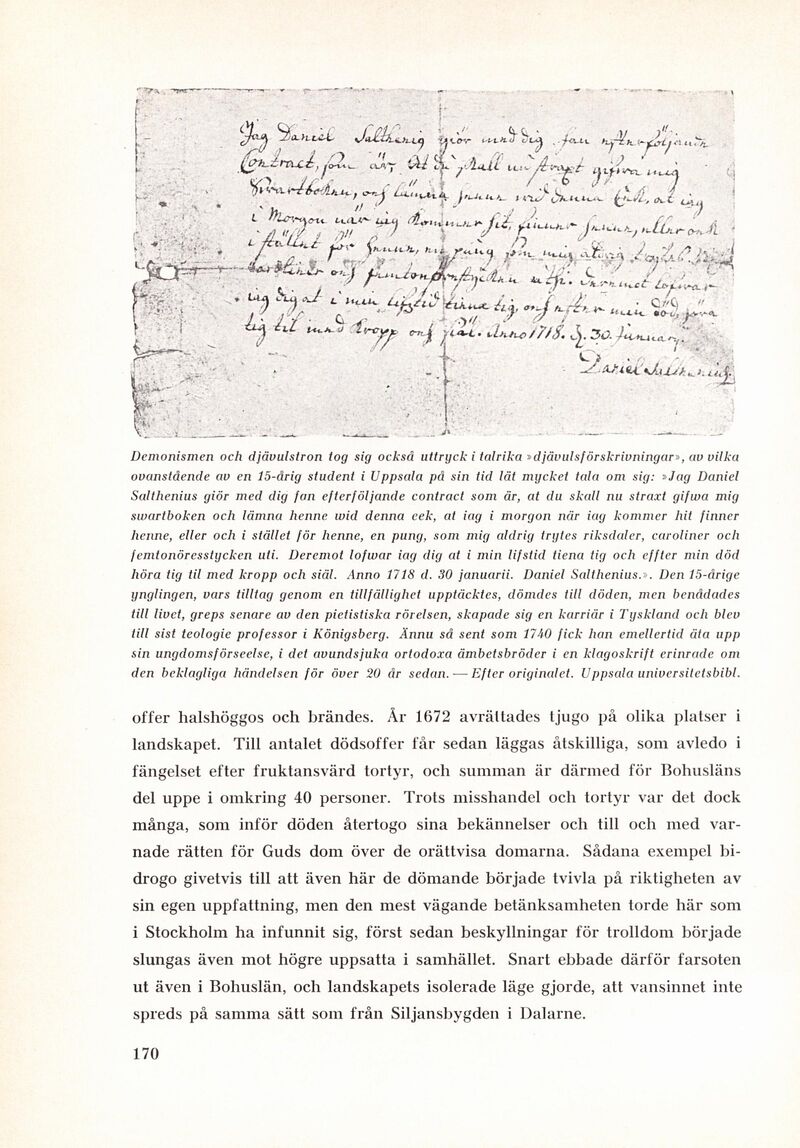 Jag Daniel Salthenius giör med dig fan efterföljande
Contract, som är, At du skall nu straxt gifwa mig
Swartboken, och lämna henne wid denna Eek, at iag
i Morgon när iag kommer hit, finner henne, eller och
i stället för henne, en pung som mig aldrig
Caroliner och femtonöresstycken uti. Deremot lofwar
iag dig at i min lifstid tiena tig, och effter min död, höra
tig til med kropp och siäl. Anno 1718. d. 30. Januarij.
Daniel Salthenius.
Demonismen och djävulstron tog sig också uttryck i talrika »djävulsförskrivningar», av vilka
ovanstående av en 15-årig student i Uppsala på sin tid lät mycket tala om sig: »Jag Daniel
Salthenius giör med dig fan efterföljande contract som är, at du skall nu straxt gifwa mig
swartboken och lämna henne wid denna eek, at iag i morgon när iag kommer hit finner
henne, eller och i stället för henne, en pung, som mig aldrig trytes riksdaler, caroliner och
femtonöresstycken uti. Deremot lofwar iag dig at i min lifstid tiena tig och effter min död
höra tig til med kropp och siäl. Anno 1718 d. 30 januarii. Daniel Salthenius.». Den 15-årige
ynglingen, vars tilltag genom en tillfällighet upptäcktes, dömdes till döden, men benådades
till livet, greps senare av den pietistiska rörelsen, skapade sig en karriär i Tyskland och blev
till sist teologie professor i Königsberg. Ännu så sent som 1740 fick han emellertid äta upp
sin ungdomsförseelse, i det avundsjuka ortodoxa ämbetsbröder i en klagoskrift erinrade om
den beklagliga händelsen för över 20 år sedan. — Efter originalet. Uppsala universitetsbibl.
offer halshöggos och brändes. År 1672 avrättades tjugo på olika platser i
landskapet. Till antalet dödsoffer får sedan läggas åtskilliga, som avledo i
fängelset efter fruktansvärd tortyr, och summan är därmed för Bohusläns
del uppe i omkring 40 personer. Trots misshandel och tortyr var det dock
många, som inför döden återtogo sina bekännelser och till och med var-
nade rätten för Guds dom över de orättvisa domarna. Sådana exempel bi-
drogo givetvis till att även här de dömande började tvivla på riktigheten av
sin egen uppfattning, men den mest vägande betänksamheten torde här som
i Stockholm ha infunnit sig, först sedan beskyllningar för trolldom började
slungas även mot högre uppsatta i samhället. Snart ebbade därför farsoten
ut även i Bohuslän, och landskapets isolerade läge gjorde, att vansinnet inte
spreds på samma sätt som från Siljansbygden i Dalarne.
170